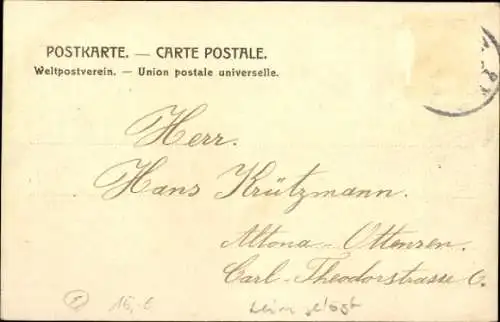 POSTKARTE. — CARTE POSTALE.
Weltpostverein. — Union postale universelle.
Herr.
Hans Krützmann.
Altona-Ottenzen.
Carl-Theodorstrasse 6.
16,-